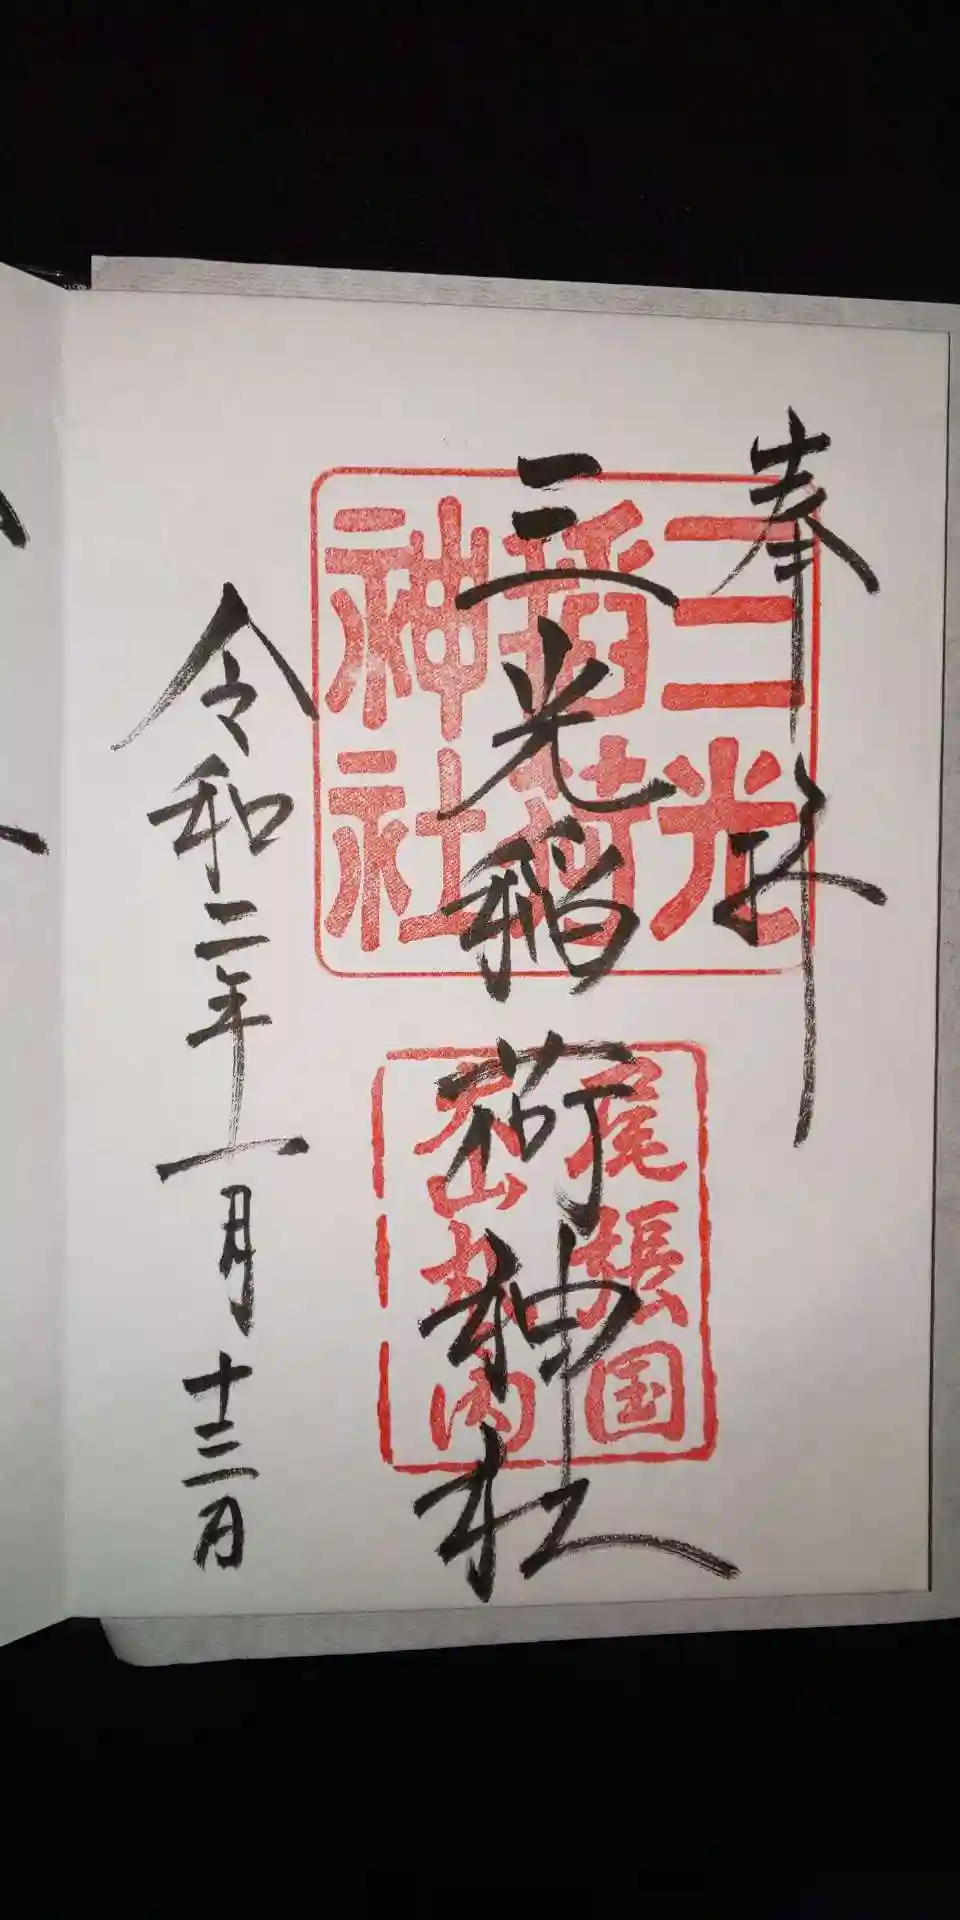 奉拝
三光稲荷神社
令和二年一月十二日
三光
稲荷
神社
尾張国
犬山城内